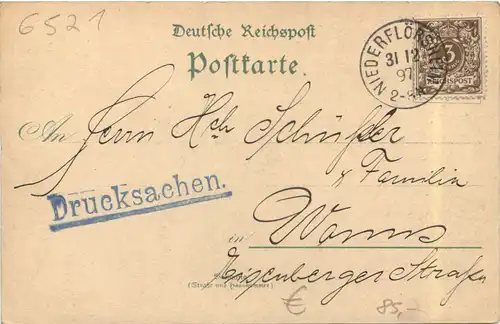 6521
Deutsche Reichspost
Postkarte.
NIEDERFLÖRSHEIM
31 12
97
2-3N
3
REICHSPOST
An Herrn Hch Schüssler
& Familie
Drucksachen.
in Worms
Eisenberger Straße
(Straße und Hausnummer)
€ 85,-